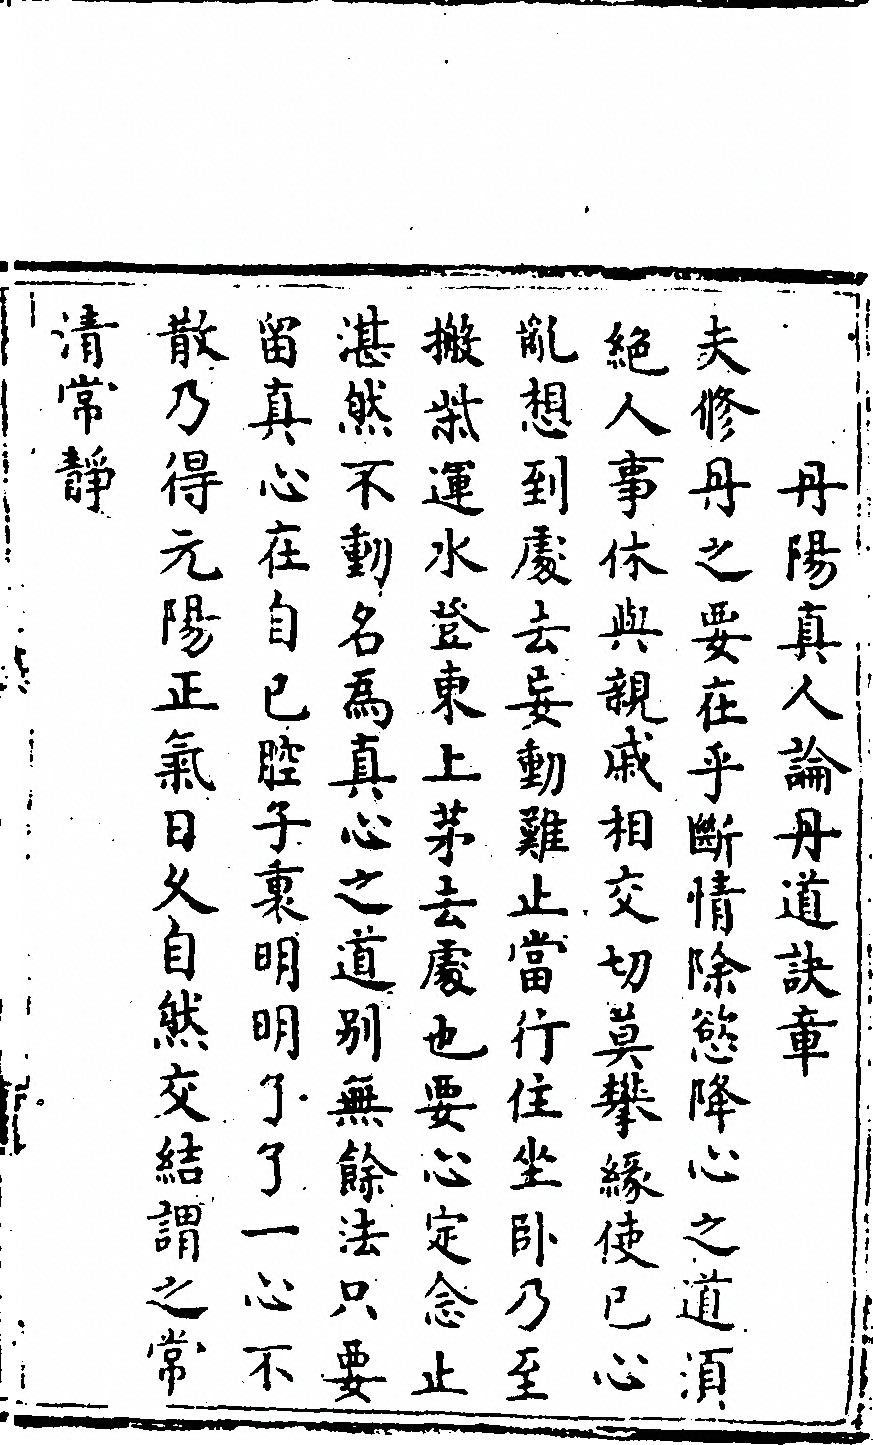 丹陽真人論丹道訣章
夫修丹之要在乎斷情除慾降心之道須
絕人事休與親戚相交切莫攀緣使已心
亂想到處去妄動難止當行住坐卧乃至
搬柴運水登東上茅去處也要心定念止
湛然不動名為真心之道别無餘法只要
留真心在自已腔子裏明明了了一心不
散乃得元陽正氣日久自然交結謂之常
清常靜